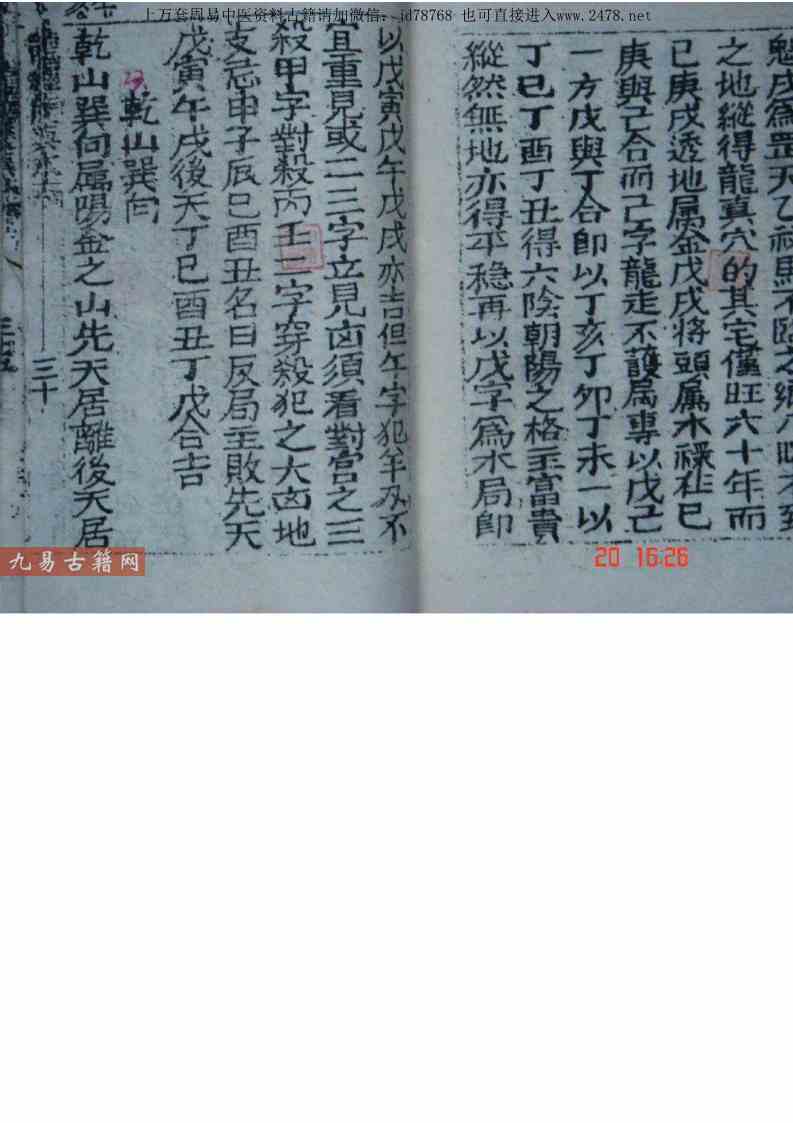 上万套周易中医资料古籍请加微信：jd78768 也可直接进入www.2478.net
魁戌為罡天乙祿馬不臨之鄉
之地縱得龍真穴的其宅僅旺六十年而
已庚戌透地属金戊戌將頭属木祿在巳
庚與己合而己字龍走不護局專以戊己
一方戊與丁合即以丁亥丁卯丁未一以
丁巳丁酉丁丑得六陰朝陽之格至富貴
縱然無地亦得平穩再以戊字爲水局即
以戊寅戊午戊戌亦吉但午字犯羊刃不
宜重見或二三字立見凶須看對宮之三
殺甲字對殺丙壬二字穿殺犯之大凶地
支忌申子辰巳酉丑名曰反局主敗先天
戊寅午戌後天丁巳酉丑丁戊合吉
乾山巽向
乾山巽向属陽金之山先天居離後天居
三十
九易古籍网
20 16:26